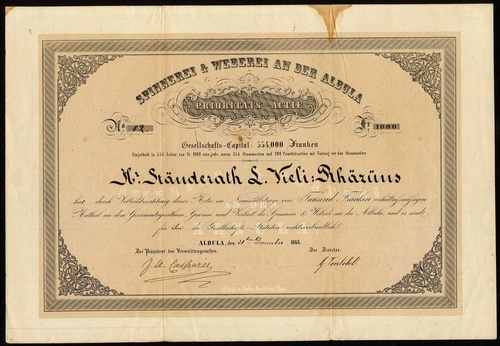 SPINNEREI & WEBEREI AN DER ALBULA
PRIORITÄTS ACTIE
No. 62. Fr. 1000
Gesellschafts-Capital: 554,000 Franken
Eingetheilt in 554 Actien von Fr. 1000 eine jede, wovon 354 Stammactien und 200 Prioritätsactien mit Vorzug vor den Stammactien
Hr. Ständerath L. Vieli-Rhäzüns
hat durch Vollentrichtung dieser Actie im Nominalbetrage von Tausend Franken verhältnissmässigen
Antheil an dem Gesammteigenthum, Gewinn und Verlust der Spinnerei & Weberei an der Albula, und es wird
für die Gesellschafts-Statuten rechtsverbindlich.
ALBULA, den December 1866.
Der Präsident des Verwaltungsrathes. Der Director.